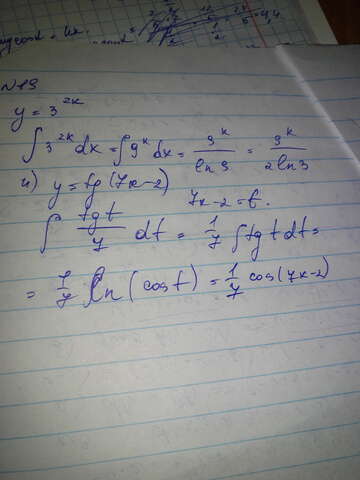 N19
y = 3^{2x}
∫ 3^{2x} dx = ∫ 9^x dx = 9^x / ln 9 = 9^x / 2 ln 3
4) y = tg (7x-2)
7x-2 = t.
∫ tg t / 7 dt = 1/7 ∫ tg t dt =
= 1/7 ln (cos t) = 1/7 cos (7x-2)